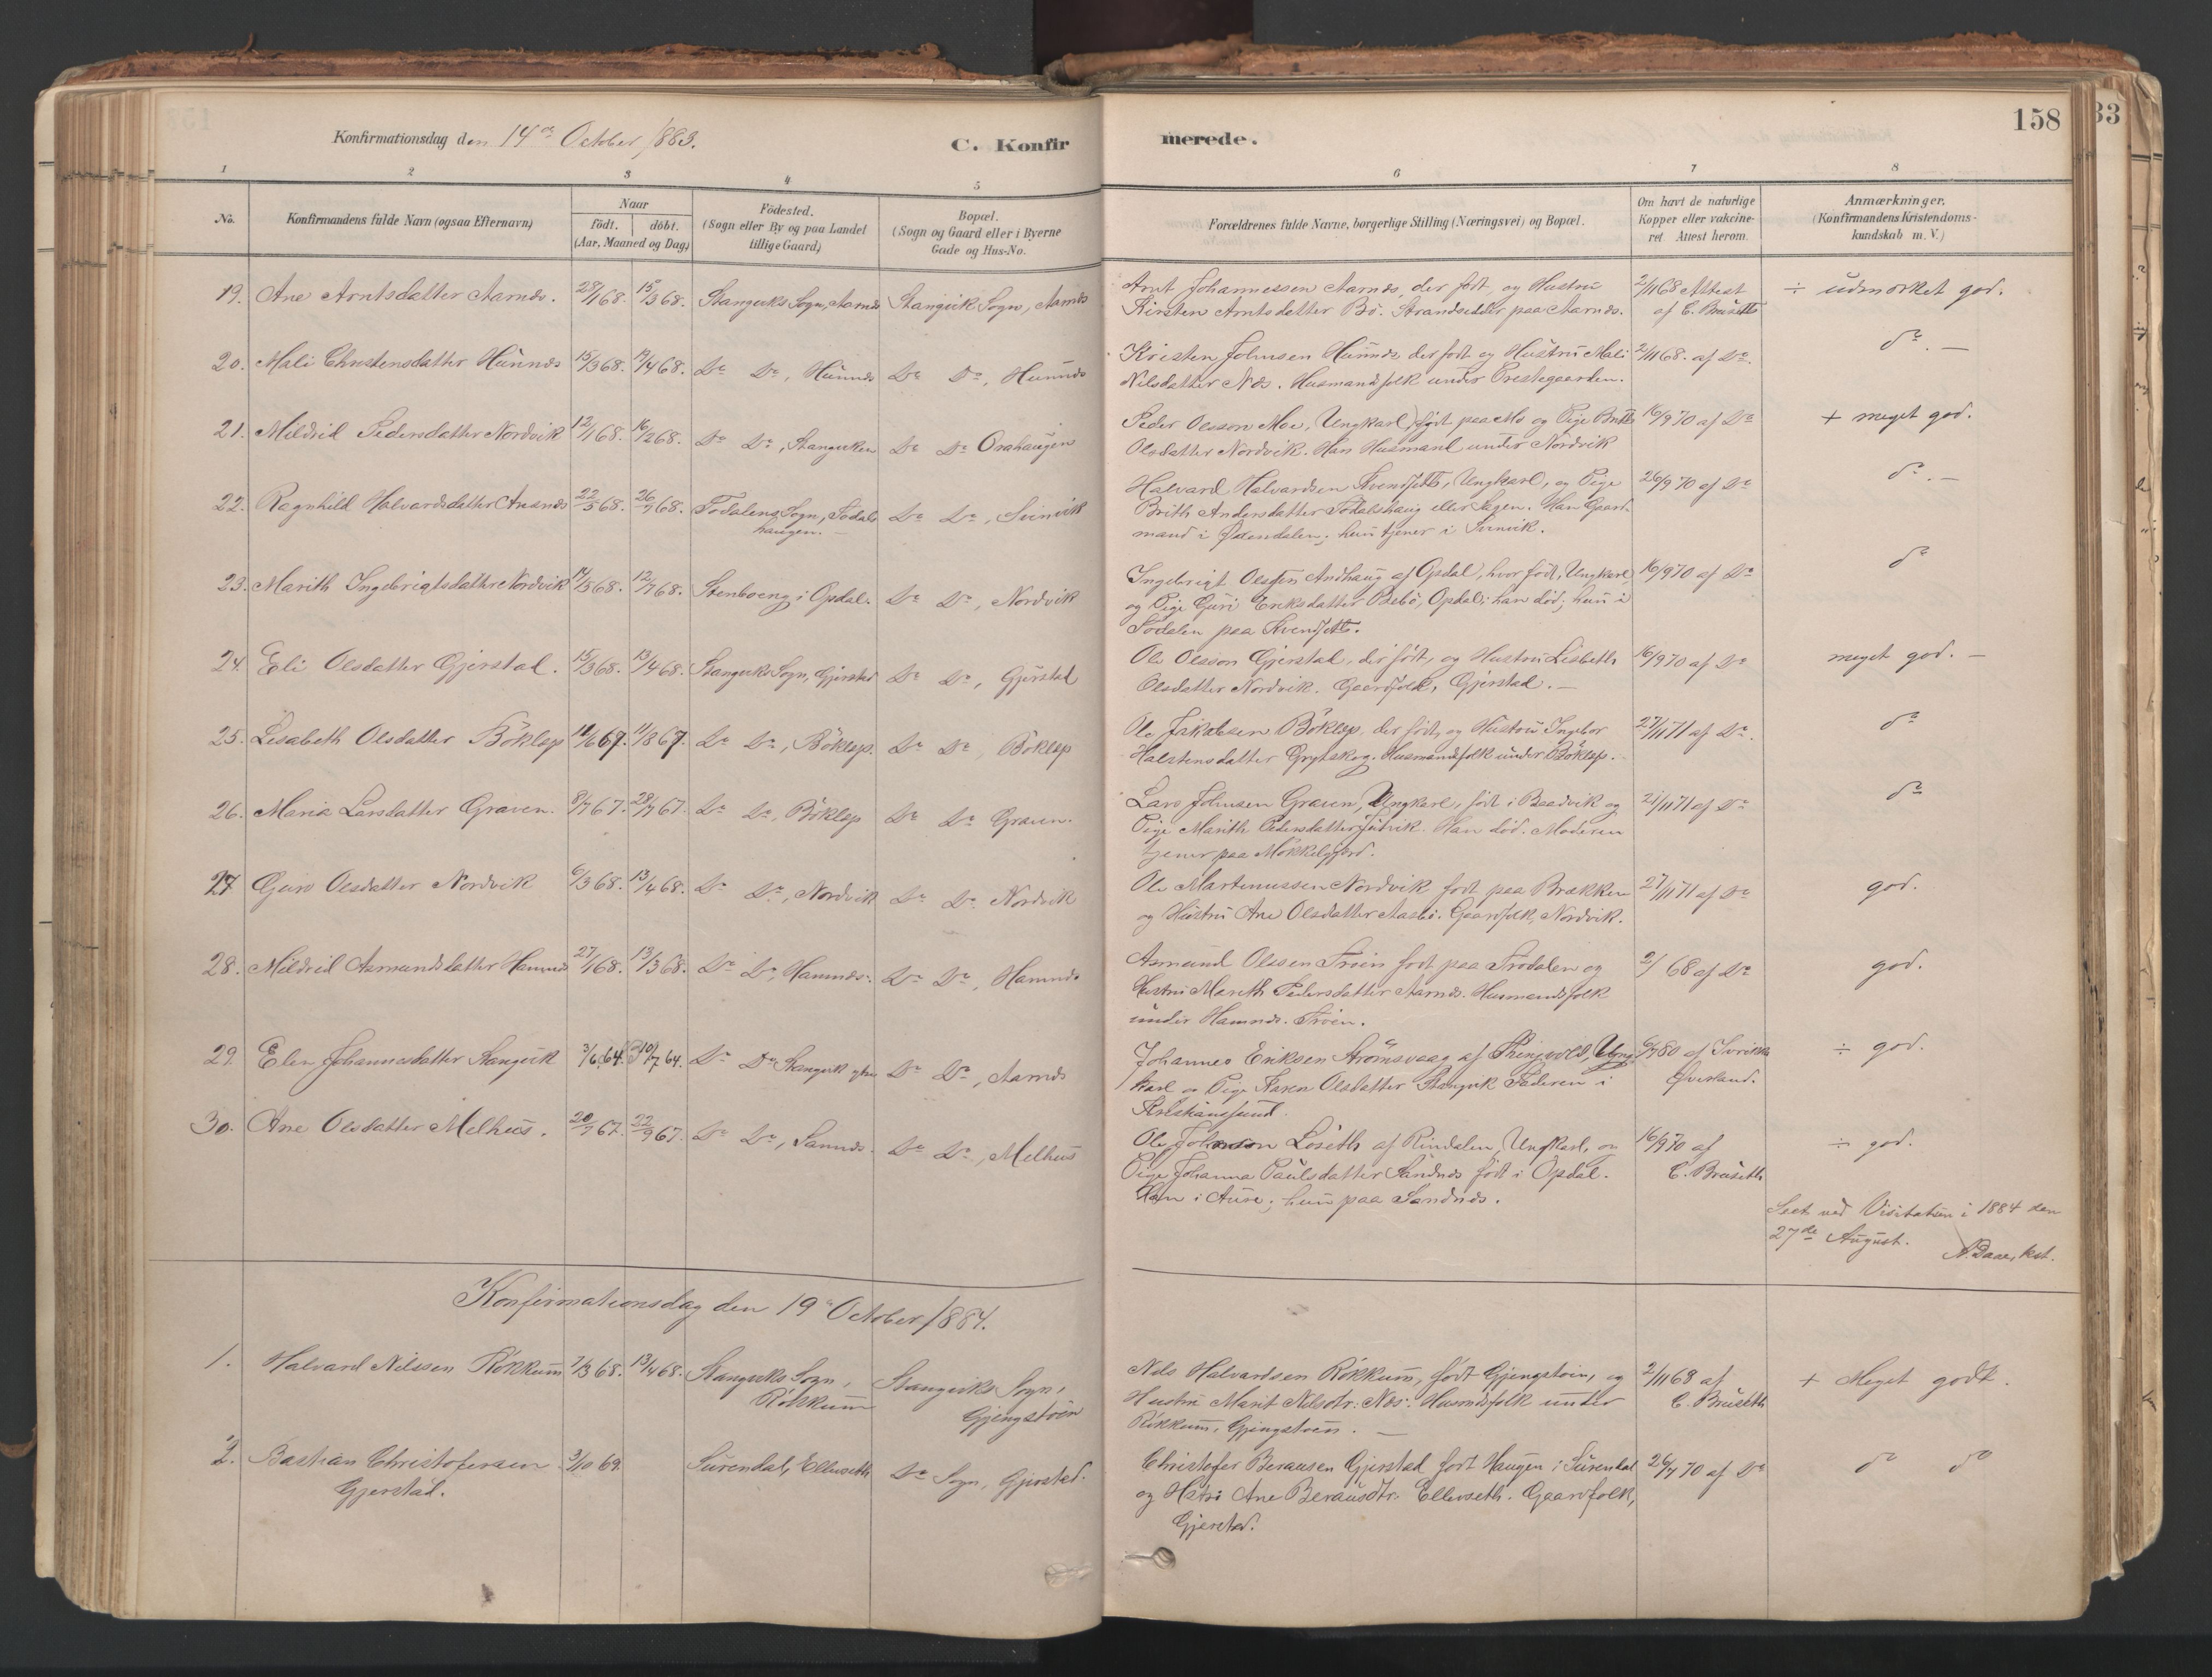 158
33
Konfirmationsdag den 14de October 1883.
C. Konfirmerede.
1 2 3 4 5 6 7 8
No.
Konfirmandens fulde Navn (ogsaa Efternavn)
Naar
födt. döbt.
(Aar, Maaned og Dag)
Födested.
(Sogn eller By og paa Landet
tillige Gaard)
Bopæl.
(Sogn og Gaard eller i Byerne
Gade og Hus-No.
Forældrenes fulde Navne, borgerlige Stilling (Næringsvei) og Bopæl.
Om havt de naturlige
Kopper eller vakcine-
ret. Attest herom.
Anmærkninger.
(Konfirmandens Kristendoms-
kundskab m. V.)
19. Ane Arntsdatter Aarnes. 28/1 68. 15/3 68. Stangviks Sogn, Aarnes Stangvik Sogn, Aarnes
Arnt Johannessen Aarnes, der født, og Hustru
Kirsten Arntsdatter Bø. Strandsidder paa Aarnes.
2/11 68 Attest
af C. Bruseth
÷ udmærket god.
20. Mali Christensdatter Hamnes 15/3 68. 19/4 68. Do Do, Hamnes Do Do, Hamnes
Kristen Johnsen Hamnes der født og Hustru Mali
Nilsdatter Næs. Husmandsfolk under Præstegaarden.
2/11 68. af Do.
do. —
21. Mildrid Pedersdatter Nordvik 12/1 68. 16/2 68. Do Do, Stangviken Do Do Orahaugen
Peder Olsson Moe, Ungkarl, født paa Mo og Pige Brith
Olsdatter Nordvik. Han Husmand under Nordvik
16/9 70 af Do
+ meget god.
22. Ragnhild Halvardsdatter Aanæs 22/5 68. 26/7 68. Todalens Sogn, Todals
haugen. — Do Do, Svinvik
Halvard Halvardsen Svendseth, Ungkarl, og Pige
Brith Andersdatter Todalshaug eller Sagen. Han Gaard-
mand i Øxendalen; hun tjener i Svinvik.
26/9 70 af Do
do. —
23. Marith Ingebrigtsdatter Nordvik 14/5 68. 12/7 68. Stenboeng i Opdal. Do Do, Nordvik
Ingebrigt Olssen Andhaug af Opdal, hvor født, Ungkarl,
og Pige Guri Eriksdatter Bebö, Opdal; han död; hun i
Todalen paa Svendseth.
16/9 70 af Do
do
24. Eli Olsdatter Gjerstad. 15/3 68. 13/4 68. Stangviks Sogn, Gjerstad Do Do, Gjerstad
Ole Olsson Gjerstad, der født, og Hustru Lisbeth
Olsdatter Nordvik. Gaardfolk, Gjerstad. —
16/9 70 af Do
meget god. —
25. Lisabeth Olsdatter Böklep 10/6 67. 11/8 67. Do Do, Böklep. Do Do, Böklep
Ole Jakobsen Böklep, der født, og Hustru Ingebor
Halstensdatter Grytskog. Husmandsfolk under Böklep.
27/11 71 af Do.
do
26. Maria Larsdatter Graven. 8/7 67. 28/7 67. Do Do, Böklep Do Do Graven.
Lars Johnsen Graven, Ungkarl, født i Baadvik og
Pige Marith Pedersdatter Settvik. Han död. Moderen
tjener paa Mokkelgjerd.
21/11 71 af Do
do
27 Guro Olsdatter Nordvik 6/3 68. 13/4 68. Do Do, Nordvik Do Do Nordvik
Ole Martinussen Nordvik født paa Brækken
og Hustru Ane Olsdatter Aasbö. Gaardfolk, Nordvik.
27/11 71 af Do
god.
28. Mildrid Asmundsdatter Hamnes 27/1 68. 13/3 68. Do Do, Hamnes. Do Do, Hamnes
Asmund Olssen Trøen født paa Trødalen og
Hustru Marith Pedersdatter Aarnes. Husmandsfolk
under Hamnes. Trøen.
2/ 68 af Do
god.
29. Elen Johannesdatter Stangvik 3/6 64. 10/7 64. Do Do Stangvik Do Do, Aarnes
Johannes Eriksen Strömsvaag af Thingvold, Ung-
karl og Pige Karen Olsdatter Stangvik Faderen i
Kristiansund.
80 af
Øverland.
÷ god.
30. Ane Olsdatter Melhus. 20/7 67. 22/9 67. Do Do, Sannes. Do Do, Melhus
Ole Johnson Löseth af Rindalen, Ungkarl, og
Pige Johanna Paulsdatter Sandnes født i Opdal.
Han i Aure; hun paa Sandnes.
16/9 70 af
C. Bruseth
÷ god.
Seet ved Visitatsen i 1884 den
27de August. N. Daae, kst.
Konfirmationsdag den 19de October 1884.
1. Halvard Nilssen Rökkum 7/3 68. 13/4 68. Stangviks Sogn,
Rökkum
Stangviks Sogn,
Gjengstöen
Nils Halvardsen Rökkum, født Gjengstoen, og
Hustru Marit Nilsdtr. Næs. Husmdsfolk under
Rökkum, Gjengstoen. —
2/11 68 af
C. Bruseth
+ Meget godt.
2. Bastian Christofersen
Gjerstad.
3/10 69. Surendal, Ellevseth Do Sogn, Gjerstad.
Christofer Berausen Gjerstad født Haugen i Surendal
og Hstr. Ane Berausdtr. Ellevseth. Gaardfolk,
Gjerstad.
26/7 70 af Do
do do